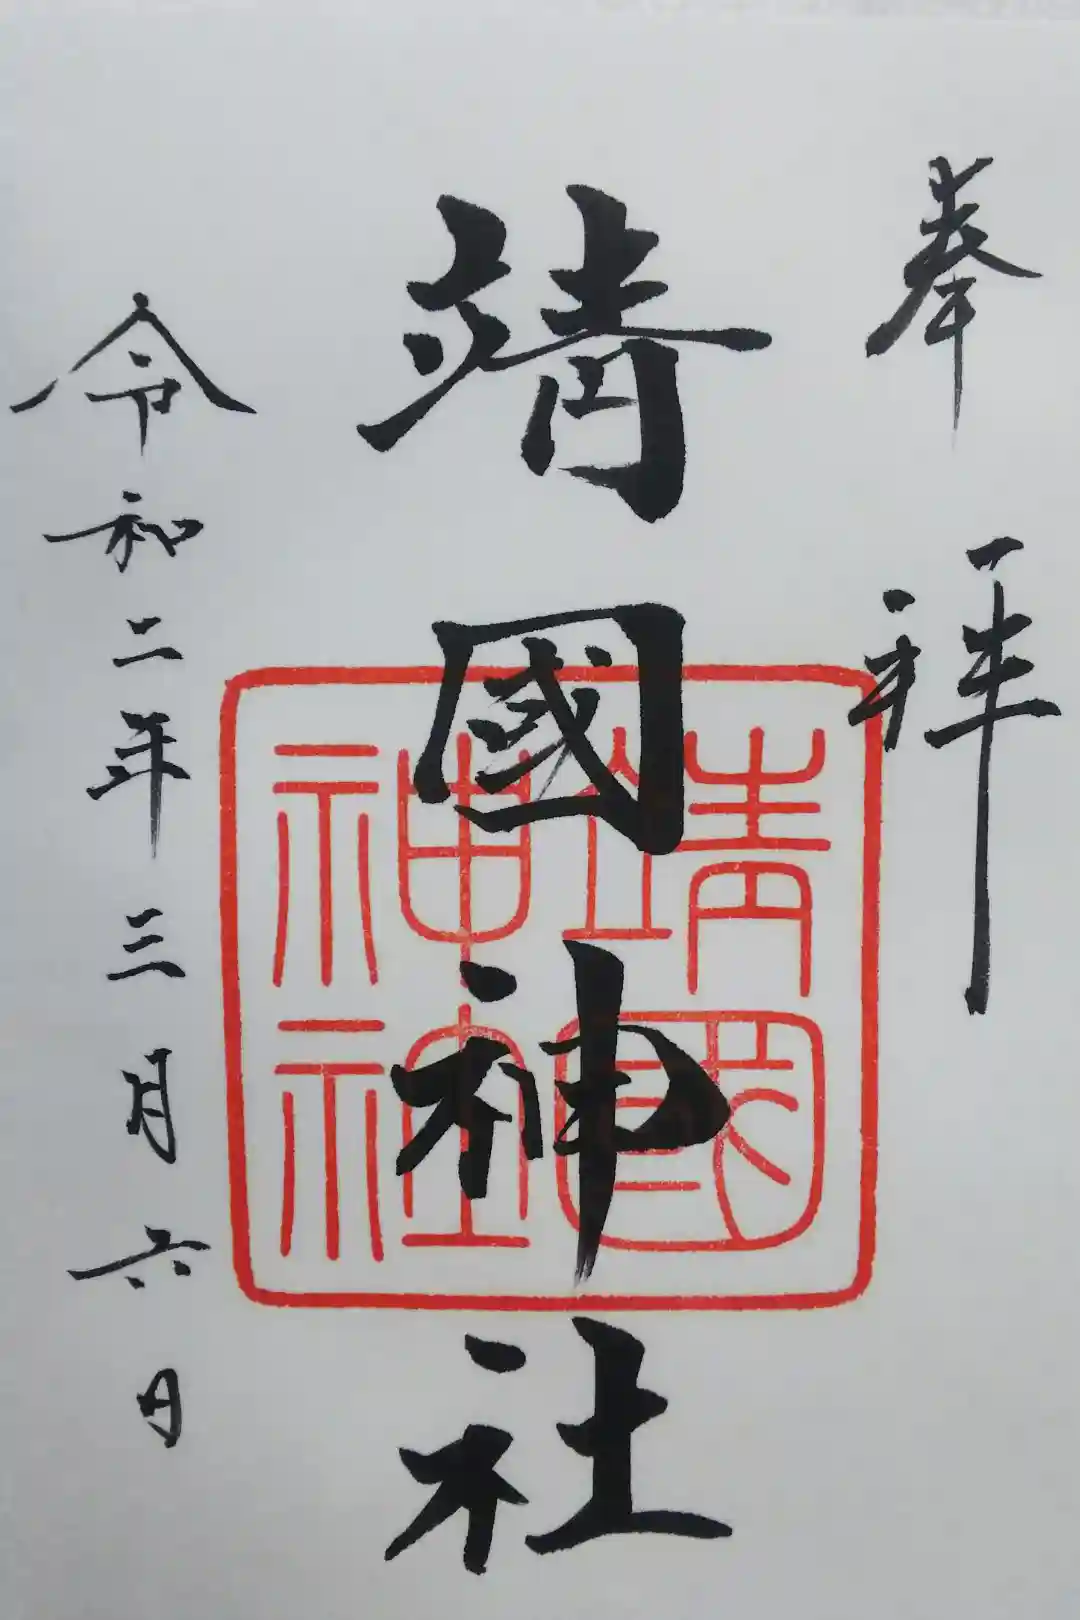 奉拝
靖國神社
靖國
神社
令和二年三月六日